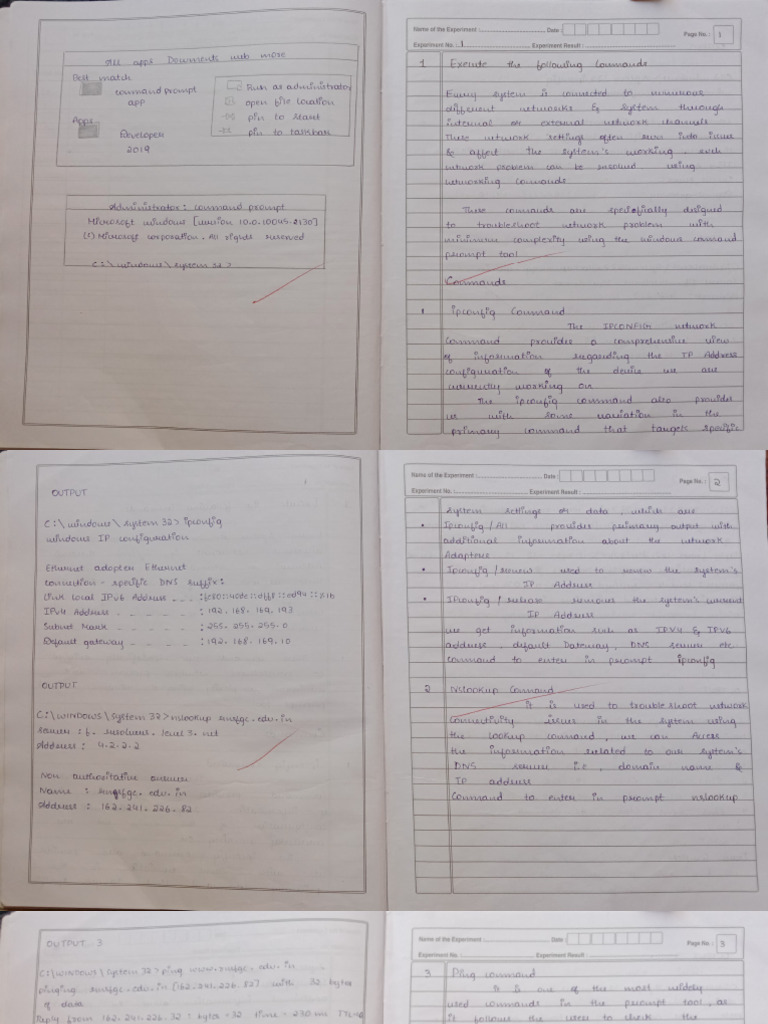 All apps Documents web more
Best match
command prompt
app
Apps
Developer
2019
Run as administrator
open file location
pin to start
pin to taskbar
Administrator: command prompt
Microsoft windows [version 10.0.10045.2130]
Microsoft corporation. All rights reserved
C:\windows\system 32>
Name of the Experiment : Date :
Page No. : 1
Experiment No. : 1 Experiment Result :
1 Execute the following Commands
Every system is connected to numerous
different networks & system through
internal or external network channels
These network settings often run into issues
& affect the system's working, such
network problem can be resolved using
networking commands
These commands are specifically designed
to troubleshoot network problem with
minimum complexity using the windows command
prompt tool
Commands
1 ipconfig Command
The IPCONFIG network
Command provides a comprehensive view
of information regarding the IP Address
configuration of the device we are
currently working on
The ipconfig command also provides
us with some variation in the
primary command that targets specific
OUTPUT
C:\windows\system 32> ipconfig
windows IP configuration
Ethernet adapter Ethernet
connection - specific DNS suffix :
Link local IPv6 Address
IPv4 Address : 192.168.169.193
Subnet Mask : 255.255.255.0
Default gateway : 192.168.169.10
OUTPUT
C:\WINDOWS\system 32> nslookup
server : b. resolvers. level 3. net
Address : 4.2.2.2
Non authoritative answer
Name :
Address : 162.241.226.82
Name of the Experiment : Date :
Page No. : 2
Experiment No. : Experiment Result :
System settings or data, which are
• Ipconfig/All provides primary output with
additional information about the network
Adapters
• Ipconfig/renew used to renew the system's
IP Address
• IPconfig/release removes the system's current
IP Address
we get information such as IPV4 & IPV6
address, default Gateway, DNS server etc
command to enter in prompt ipconfig
2 Nslookup Command
it is used to troubleshoot network
Connectivity issues in the system using
the lookup command, we can Access
the information related to our system's
DNS server i.e, domain name &
IP address
Command to enter in prompt nslookup
OUTPUT 3
C:\WINDOWS\System 32> ping
pinging [162.241.226.82] with 32 bytes
of data
Reply from 162.241.226.32 : bytes = 32 time = 230 ms
Name of the Experiment : Date :
Page No. : 3
Experiment No. : Experiment Result :
3 Ping command
It is one of the most widely
used commands in the prompt tool, as
it follows the user to check the